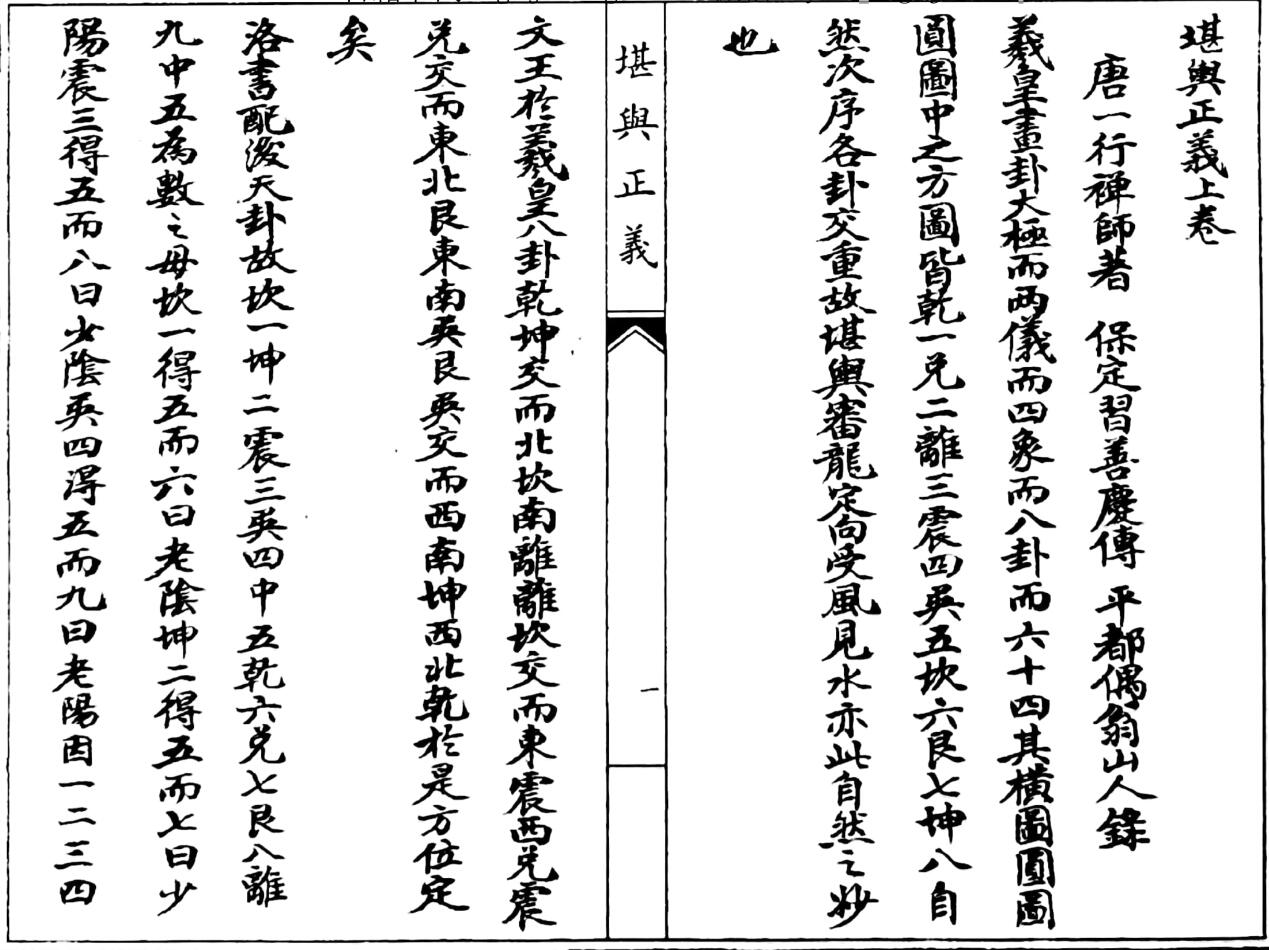 堪輿正義上卷
唐一行禅師著 保定習善慶傳 平都偶翁山人錄
羲皇畫卦大極而两儀而四象而八卦而六十四其橫圖圓圖
圓圖中之方圖皆乾一兌二離三震四巽五坎六艮七坤八自
然次序各卦交重故堪輿審龍定向受風見水亦此自然之妙
也
堪輿正義
一
文王於羲皇八卦乾坤交而北坎南離離坎交而東震西兌震
兌交而東北艮東南巽艮巽交而西南坤西北乾於是方位定
矣
洛書配後天卦故坎一坤二震三巽四中五乾六兌七艮八離
九中五為數之母坎一得五而六曰老陰坤二得五而七曰少
陽震三得五而八曰少陰巽四得五而九曰老陽因一二三四